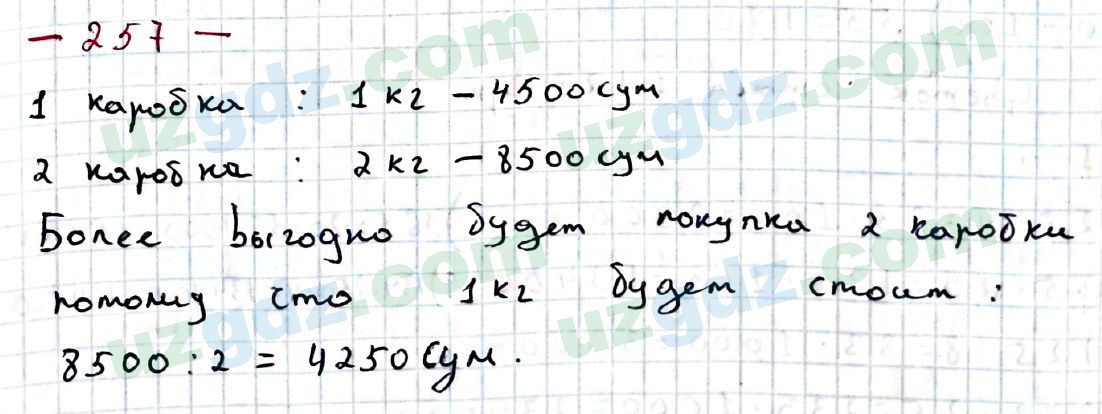 — 257 —
1 каробка : 1 кг – 4500 сум
2 каробка : 2 кг – 8500 сум
Более выгодно будет покупка 2 каробки
потому сто 1 кг будет стоит :
8500 : 2 = 4250 сум .
uzgdz.com
uzgdz.com
uzgdz.com
uzgdz.com